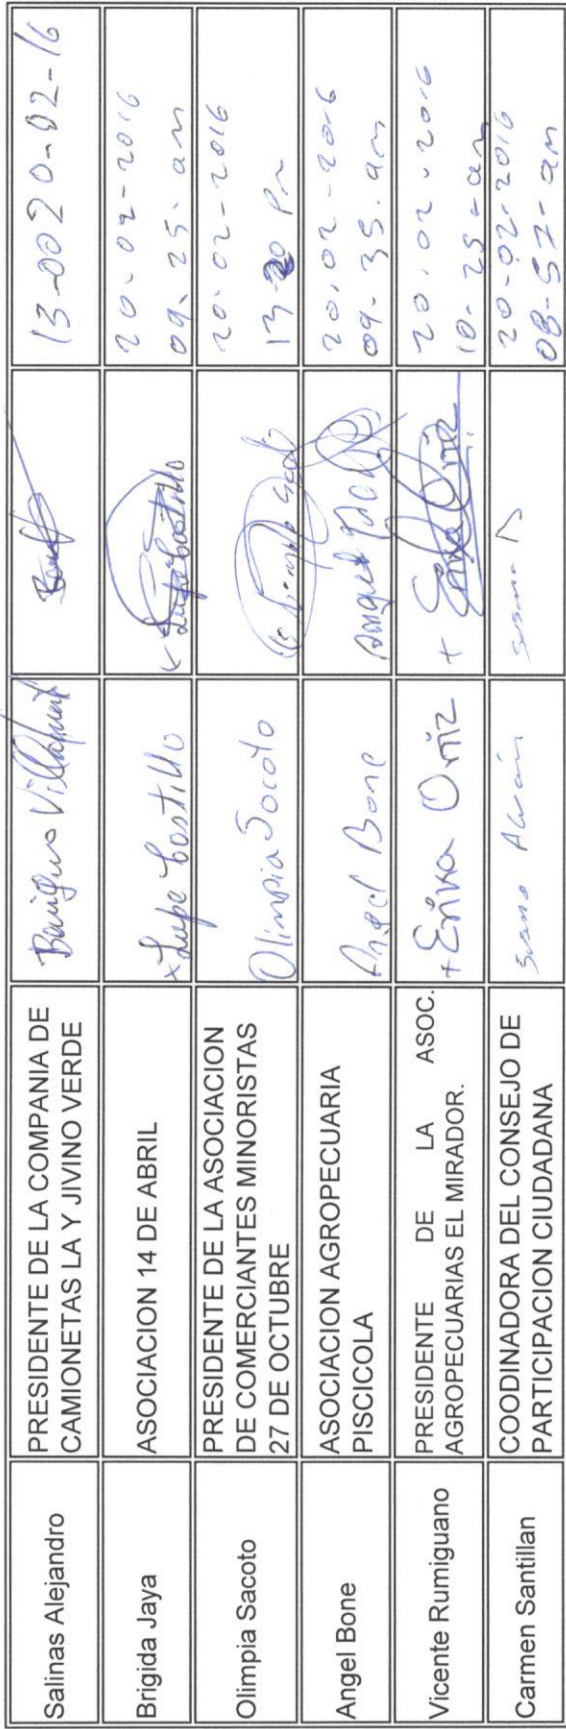 Salinas Alejandro
PRESIDENTE DE LA COMPANIA DE
CAMIONETAS LA Y JIVINO VERDE
13-00 20-02-16
Brigida Jaya
ASOCIACION 14 DE ABRIL
x Lupe Castillo
Lupe Castillo
20-02-2016
09-25-am
Olimpia Sacoto
PRESIDENTE DE LA ASOCIACION
DE COMERCIANTES MINORISTAS
27 DE OCTUBRE
Olimpia Socoto
20-02-2016
Angel Bone
ASOCIACION AGROPECUARIA
PISCICOLA
Angel Bone
Angel Bone
20-02-2016
09-35-am
Vicente Rumiguano
PRESIDENTE DE LA ASOC.
AGROPECUARIAS EL MIRADOR.
+ Erika Ortiz
+ Erika Ortiz
20-02-2016
10-25-am
Carmen Santillan
COODINADORA DEL CONSEJO DE
PARTICIPACION CIUDADANA
20-02-2016
08-57-am